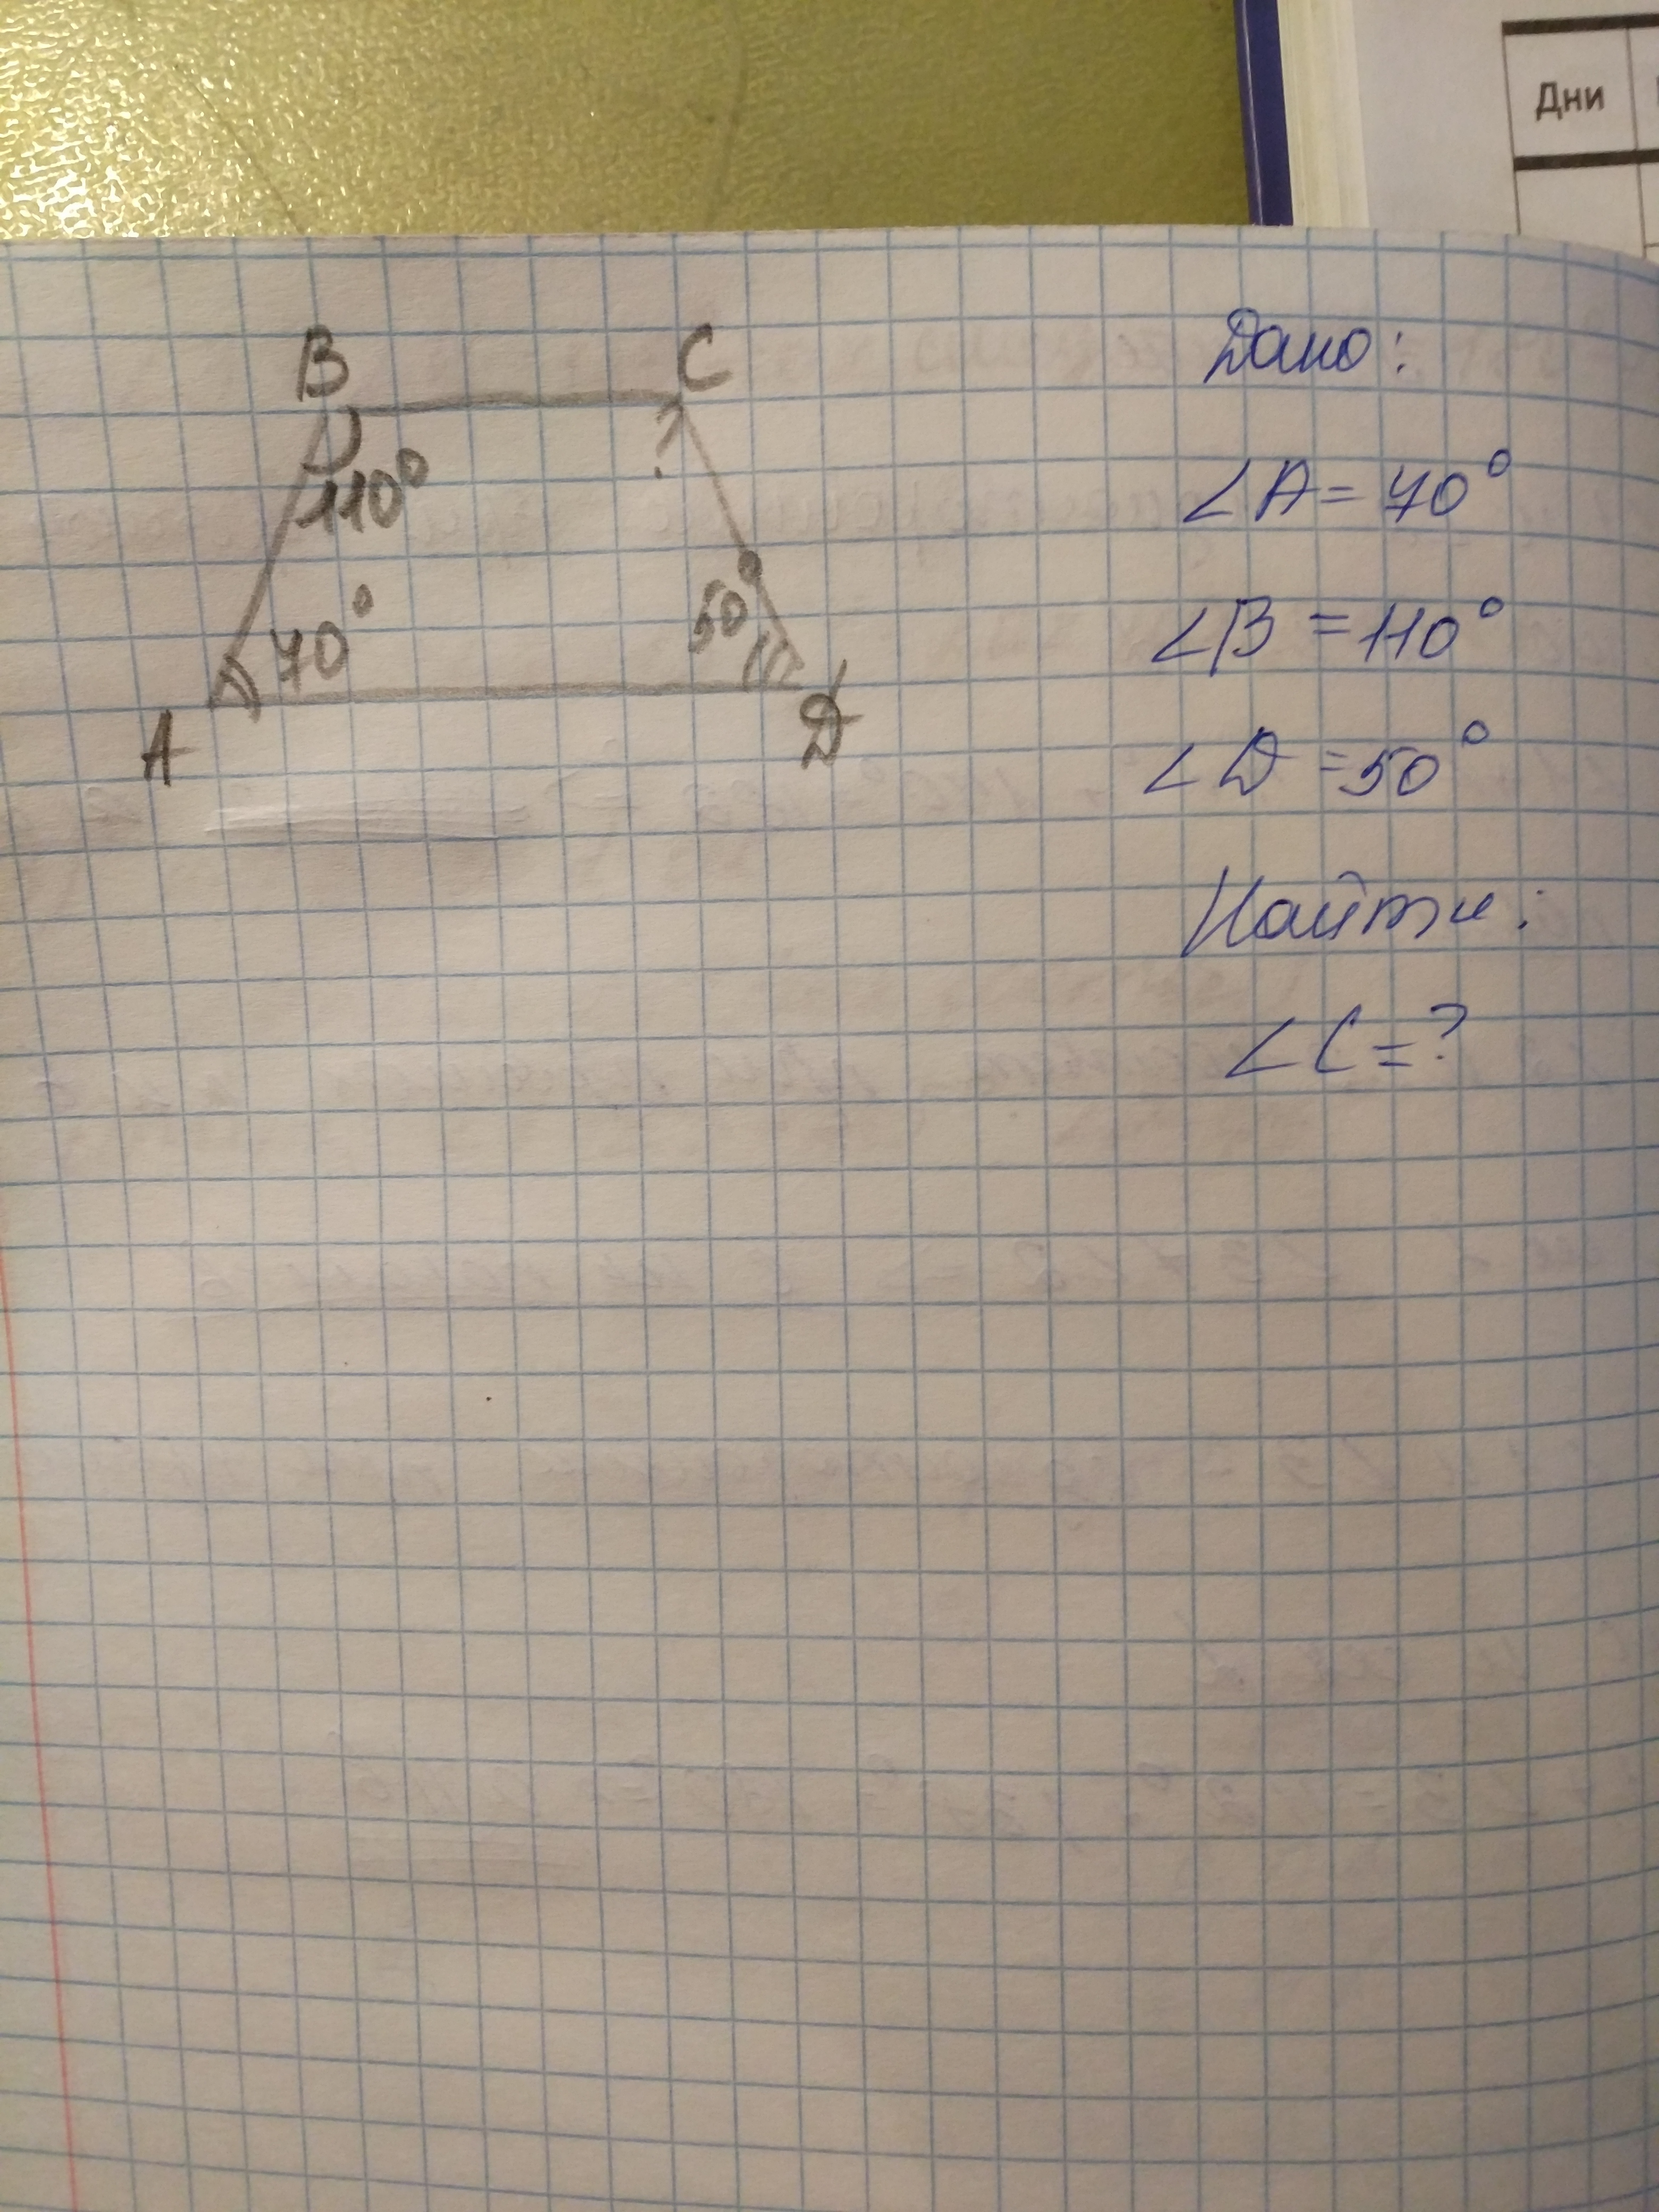 Дни
B
C
110°
70°
50°
?
A
D
Дано:
∠A = 70°
∠B = 110°
∠D = 50°
Найти:
∠C = ?